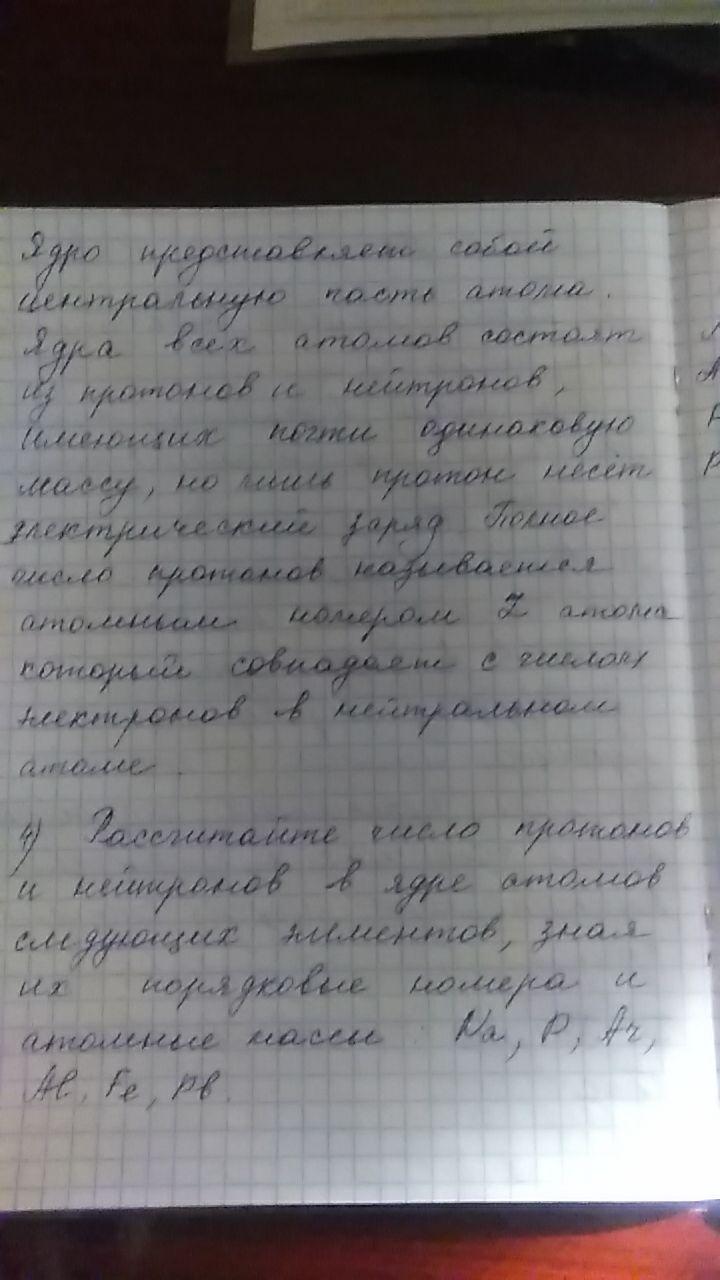 Ядро представляет собой
центральную пасть атома.
Ядра всех атомов состоят
из протонов и нейтронов,
имеющих почти одинаковую
массу, но лишь протон несёт
электрический заряд Полное
число протонов называется
атомным номером Z атома
который совпадает с числом
электронов в нейтральном
атоме.
4) Рассчитайте число протонов
и нейтронов в ядре атомов
следующих элементов, зная
их порядковые номера и
атомные массы Na, P, Ar,
Al, Fe, Pb.